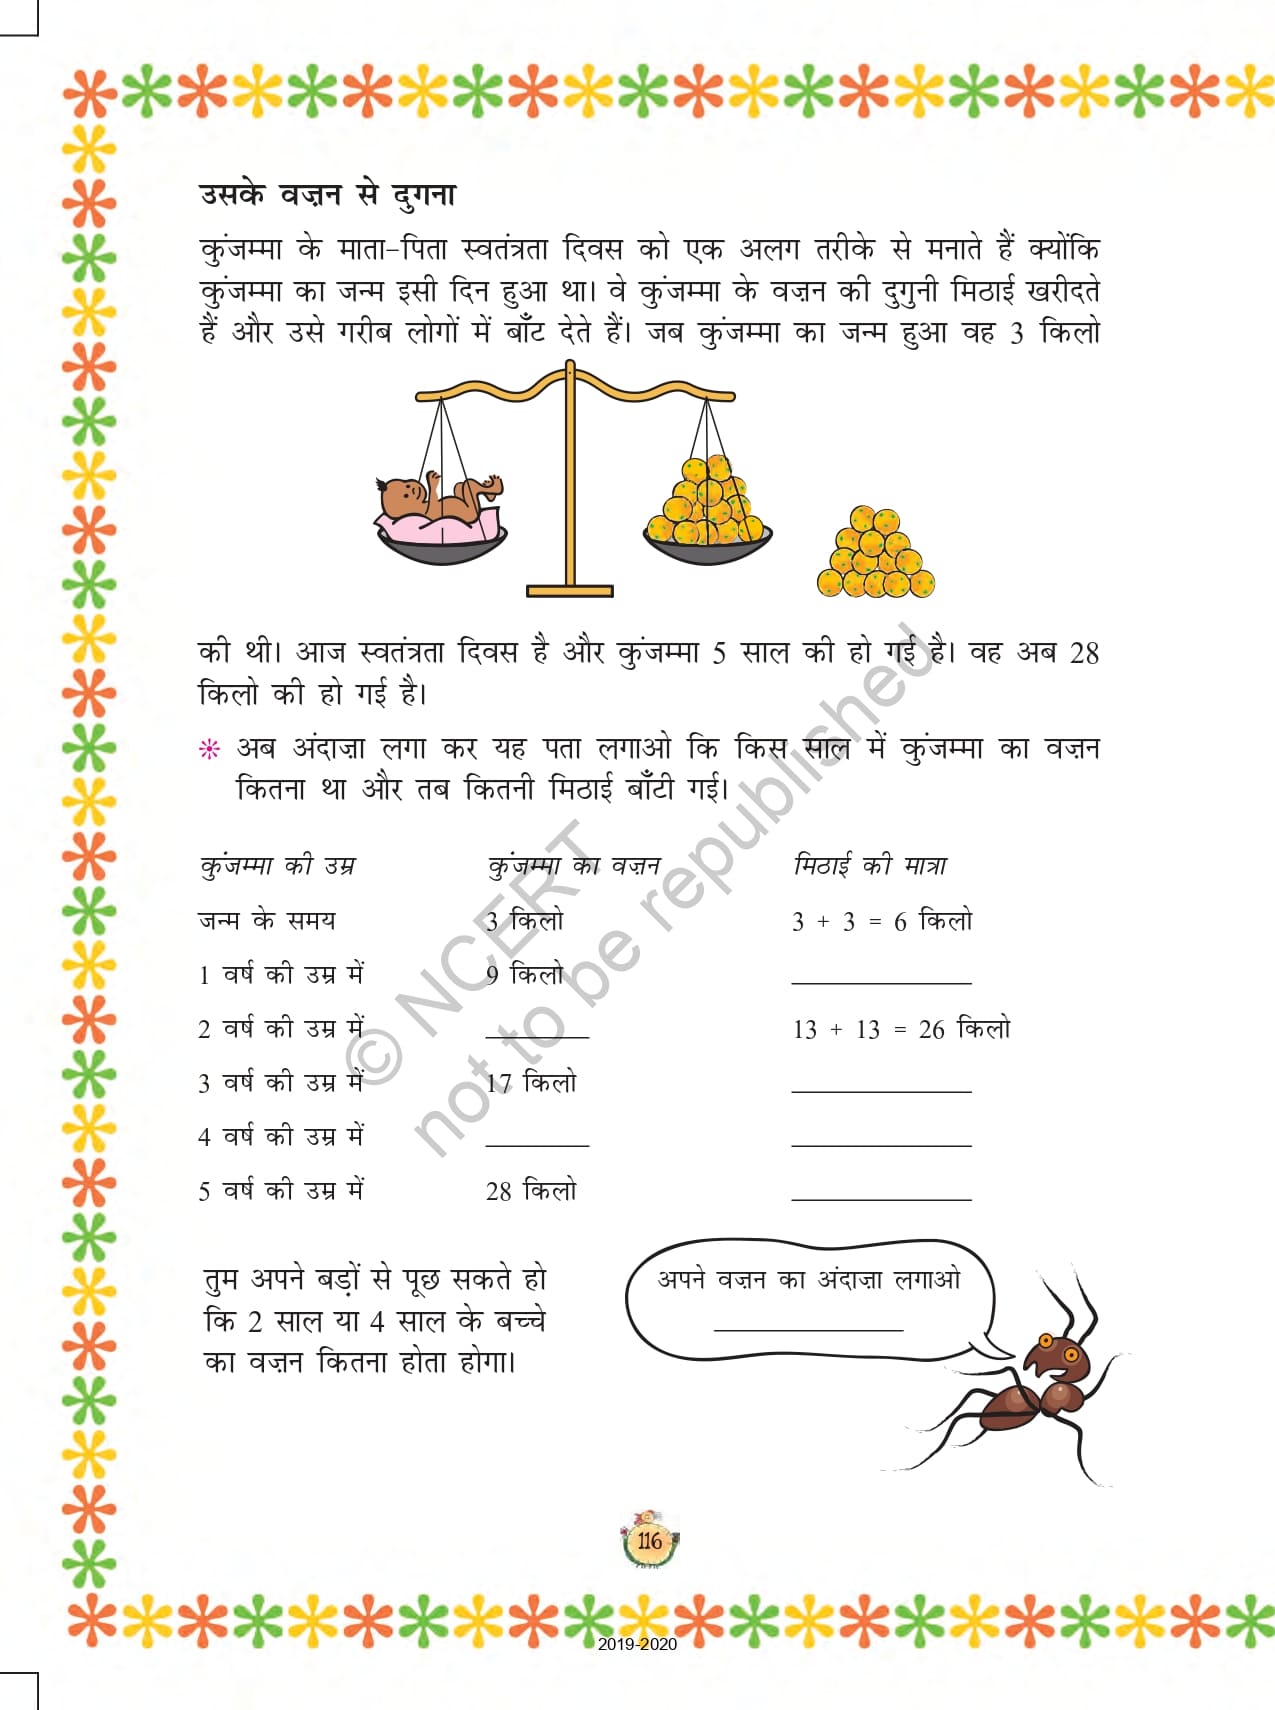 उसके वज़न से दुगना
कुंजम्मा के माता-पिता स्वतंत्रता दिवस को एक अलग तरीके से मनाते हैं क्योंकि
कुंजम्मा का जन्म इसी दिन हुआ था। वे कुंजम्मा के वज़न की दुगुनी मिठाई खरीदते
हैं और उसे गरीब लोगों में बाँट देते हैं। जब कुंजम्मा का जन्म हुआ वह 3 किलो
की थी। आज स्वतंत्रता दिवस है और कुंजम्मा 5 साल की हो गई है। वह अब 28
किलो की हो गई है।
अब अंदाज़ा लगा कर यह पता लगाओ कि किस साल में कुंजम्मा का वज़न
कितना था और तब कितनी मिठाई बाँटी गई।
कुंजम्मा की उम्र कुंजम्मा का वज़न मिठाई की मात्रा
जन्म के समय 3 किलो 3 + 3 = 6 किलो
1 वर्ष की उम्र में 9 किलो ____________
2 वर्ष की उम्र में _______ 13 + 13 = 26 किलो
3 वर्ष की उम्र में 17 किलो ____________
4 वर्ष की उम्र में _______ ____________
5 वर्ष की उम्र में 28 किलो ____________
तुम अपने बड़ों से पूछ सकते हो
कि 2 साल या 4 साल के बच्चे
का वज़न कितना होता होगा।
अपने वज़न का अंदाज़ा लगाओ
____________
© NCERT
not to be republished
116
2019-2020